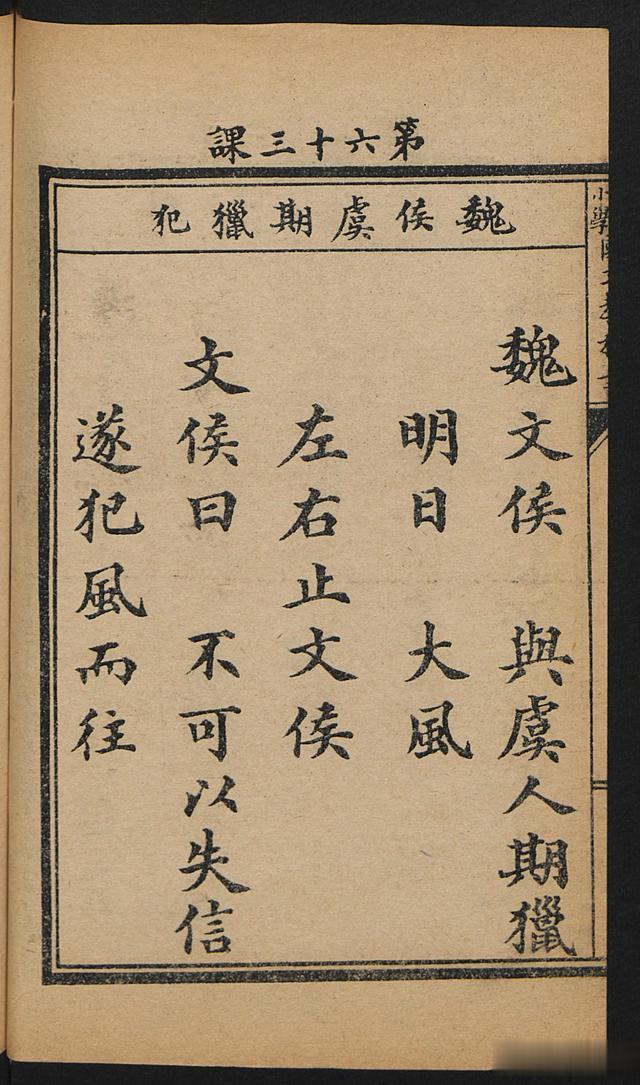 第六十三課
魏侯虞期獵犯
魏文侯　與虞人期獵
明日　大風
左右止文侯
文侯曰　不可以失信
遂犯風而往
小學國文